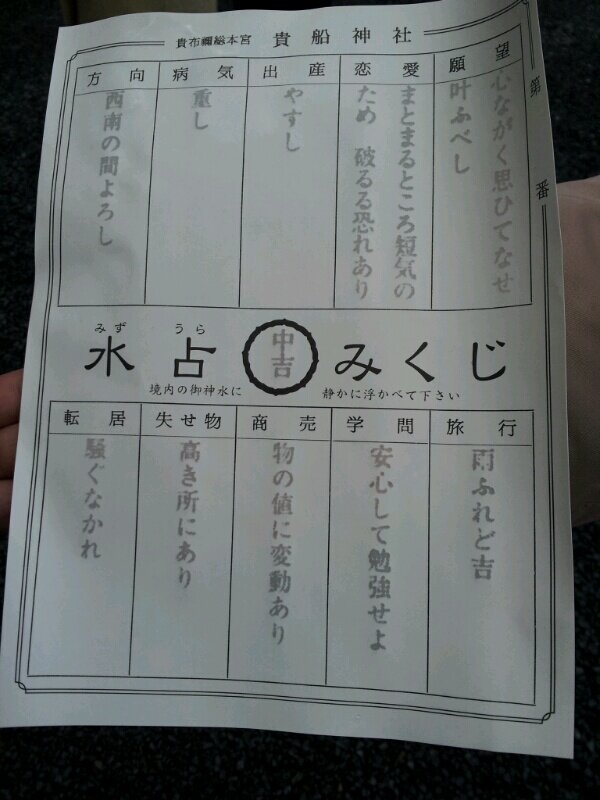 貴布禰総本宮 貴船神社
第 番
願望
心ながく思ひてなせ
叶ふべし
恋愛
まとまるところ短気の
ため 破るる恐れあり
出産
やすし
病気
重し
方向
西南の間よろし
みず うら
水占みくじ
中吉
境内の御神水に 静かに浮かべて下さい
旅行
雨ふれど吉
学問
安心して勉強せよ
商売
物の値に変動あり
失せ物
高き所にあり
転居
騒ぐなかれ